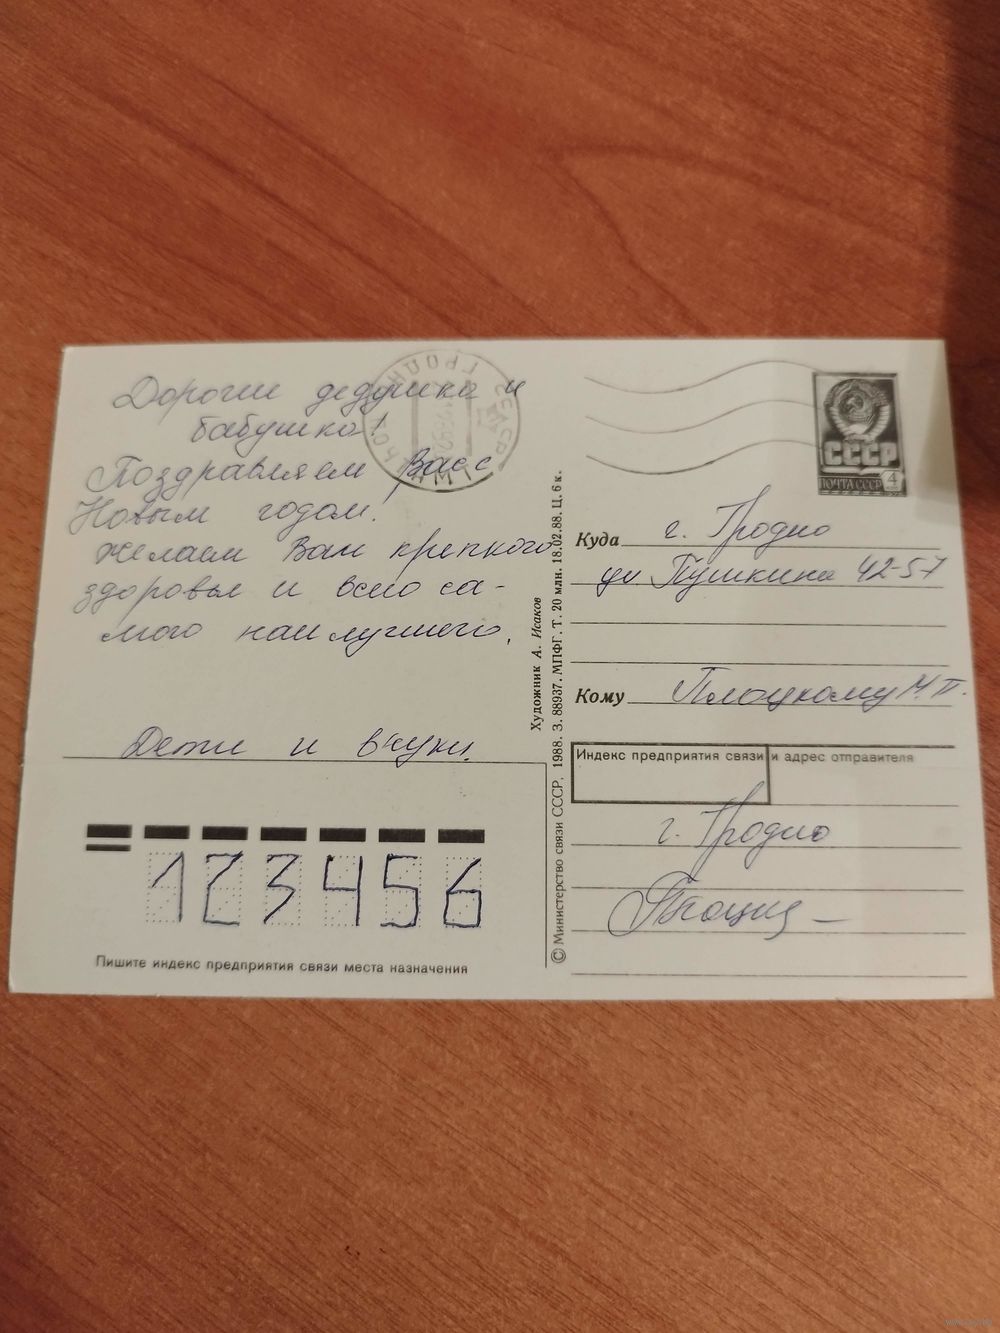 Дорогие дедушка и
бабушка!
Поздравляем Вас с
Новым годом!
Желаем Вам крепкого
здоровья и всего са-
мого наилучшего.
Дети и внуки.
123456
Пишите индекс предприятия связи места назначения
Художник А. Исаков
© Министерство связи СССР, 1988. З. 88937. МПФГ. Т. 20 млн. 18.02.88. Ц. 6 к.
СССР
ПОЧТА СССР 4
Куда г. Гродно
ул Пушкина 42-57
Кому Плоцкому М.П.
Индекс предприятия связи и адрес отправителя
г. Гродно